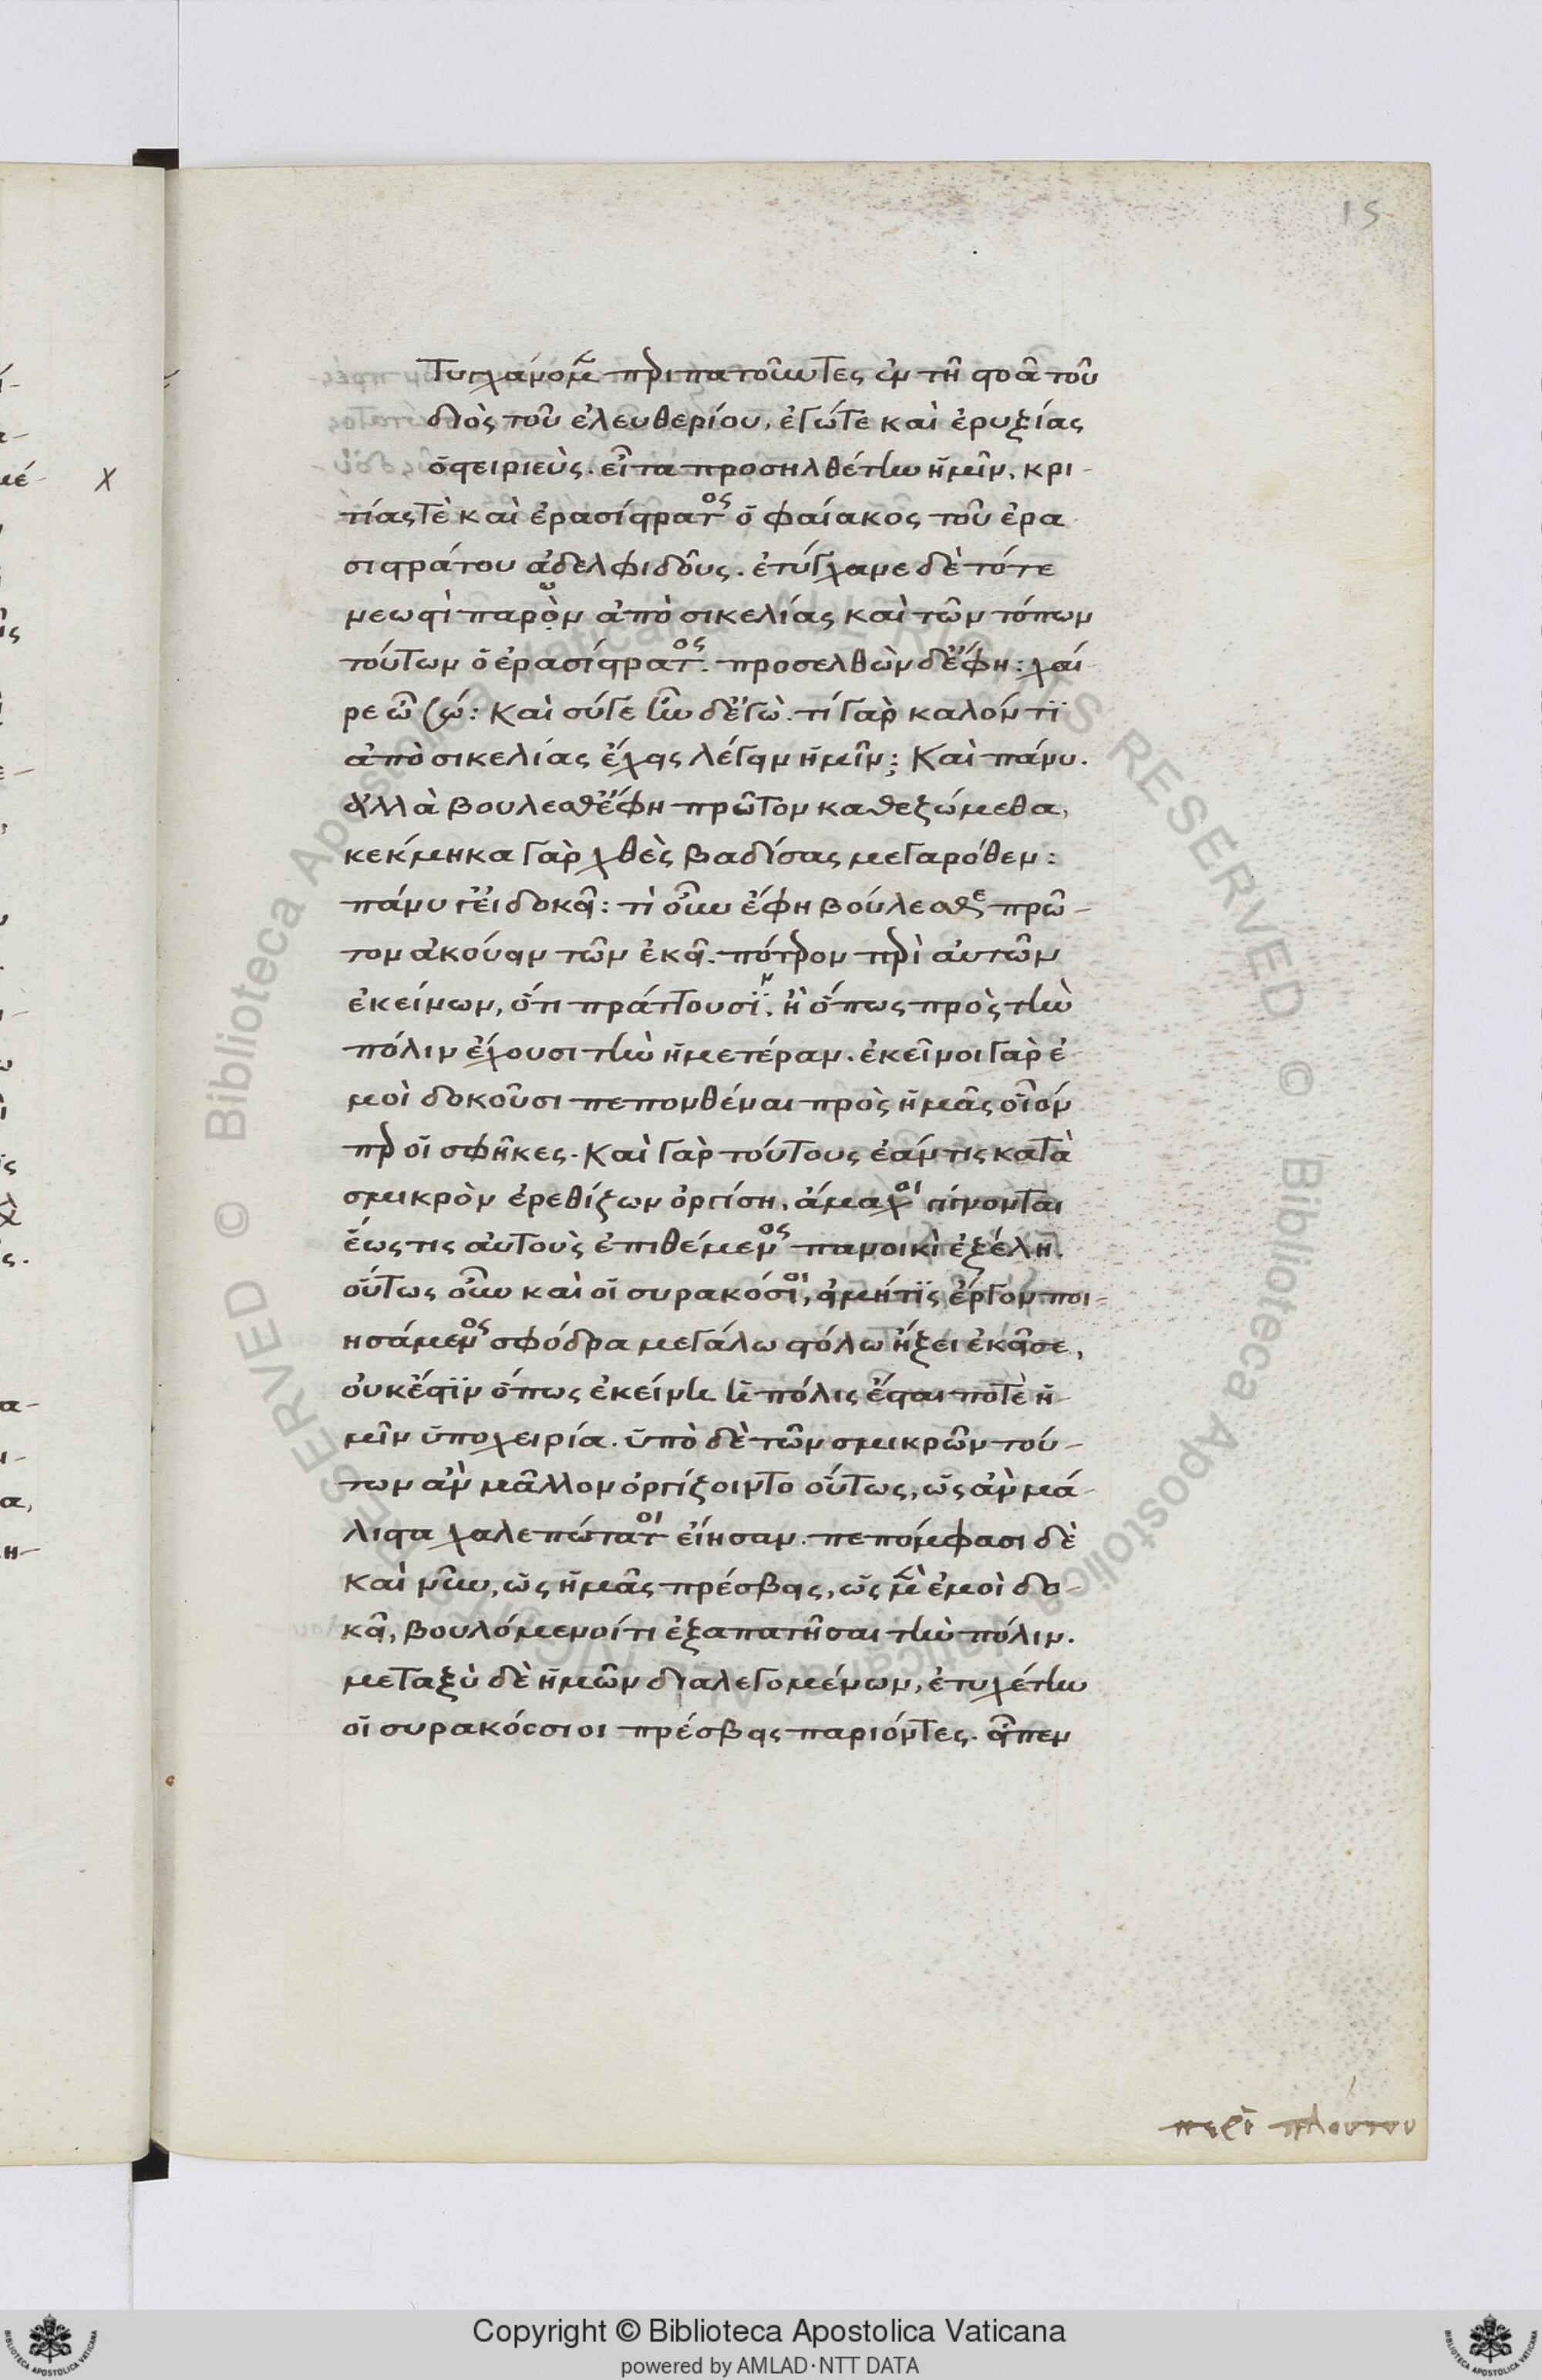 15
Τυγχάνομεν περιπατοῦντες ἐν τῇ στοᾷ τοῦ
διὸς τοῦ ἐλευθερίου, ἐγώτε καὶ ἐρυξίας
ὁ στειριεὺς. εἶτα προσηλθέτην ἡμῖν, κρι-
τίας τὲ καὶ ἐρασίστρατος ὁ φαίακος τοῦ ἐρα
σιστράτου ἀδελφιδοῦς. ἐτύγχανε δὲ τότε
νεωστὶ παρὸν ἀπὸ σικελίας καὶ τῶν τόπων
τούτων ὁ ἐρασίστρατος. προσελθὼν δ' ἔφη: χαί
ρε ὦ σώ: Καὶ σύγε ἦν δ' ἐγὼ. τί γὰρ καλόν τι
ἀπὸ σικελίας ἔχεις λέγειν ἡμῖν; Καὶ πάνυ.
ἀλλὰ βούλεσθ' ἔφη πρῶτον καθεζώμεθα,
κεκμηκα γὰρ χθὲς βαδίσας μεγαρόθεν:
πάνυ γ' εἰ δοκεῖ: τὶ οὖν ἔφη βούλεσθε πρῶ-
τον ἀκούειν τῶν ἐκεῖ. πότερον περὶ αὐτῶν
ἐκείνων, ὅτι πράττουσιν. ἢ ὅπως πρὸς τὴν
πόλιν ἔχουσι τὴν ἡμετέραν. ἐκεῖνοι γὰρ ἐ-
μοὶ δοκοῦσι πεπονθέναι πρὸς ἡμᾶς οἷόν
περ οἱ σφῆκες. Καὶ γὰρ τούτους ἐάν τις κατὰ
σμικρὸν ἐρεθίζων ὀργίση, ἄμαχοι γίνονται
ἕως τις αὐτοὺς ἐπιθέμενος πανοικὶ ἐξέλη.
οὕτως οὖν καὶ οἱ συρακόσιοι, εἰ μή τις ἔργον ποι-
ησάμενος σφόδρα μεγάλω στόλω ἥξει ἐκεῖσε,
οὐκ ἔστιν ὅπως ἐκείνη ἡ πόλις ἔσται ποτὲ ἡ-
μῖν ὑποχειρία. ὑπὸ δὲ τῶν σμικρῶν τού-
των ἂν μᾶλλον ὀργίζοιντο οὕτως, ὡς ἂν μά-
λιστα χαλεπώτατοι εἴησαν. πεπόμφασι δὲ
καὶ νῦν, ὡς ἡμᾶς πρέσβεις, ὡς μὲν ἐμοὶ δο-
κεῖ, βουλόμενοί τι ἐξαπατῆσαι τὴν πόλιν.
μεταξὺ δὲ ἡμῶν διαλεγομένων, ἐτυχέτην
οἱ συρακόσσιοι πρέσβεις παριόντες. εἶπεν
περὶ πλούτου
Copyright © Biblioteca Apostolica Vaticana
powered by AMLAD·NTT DATA